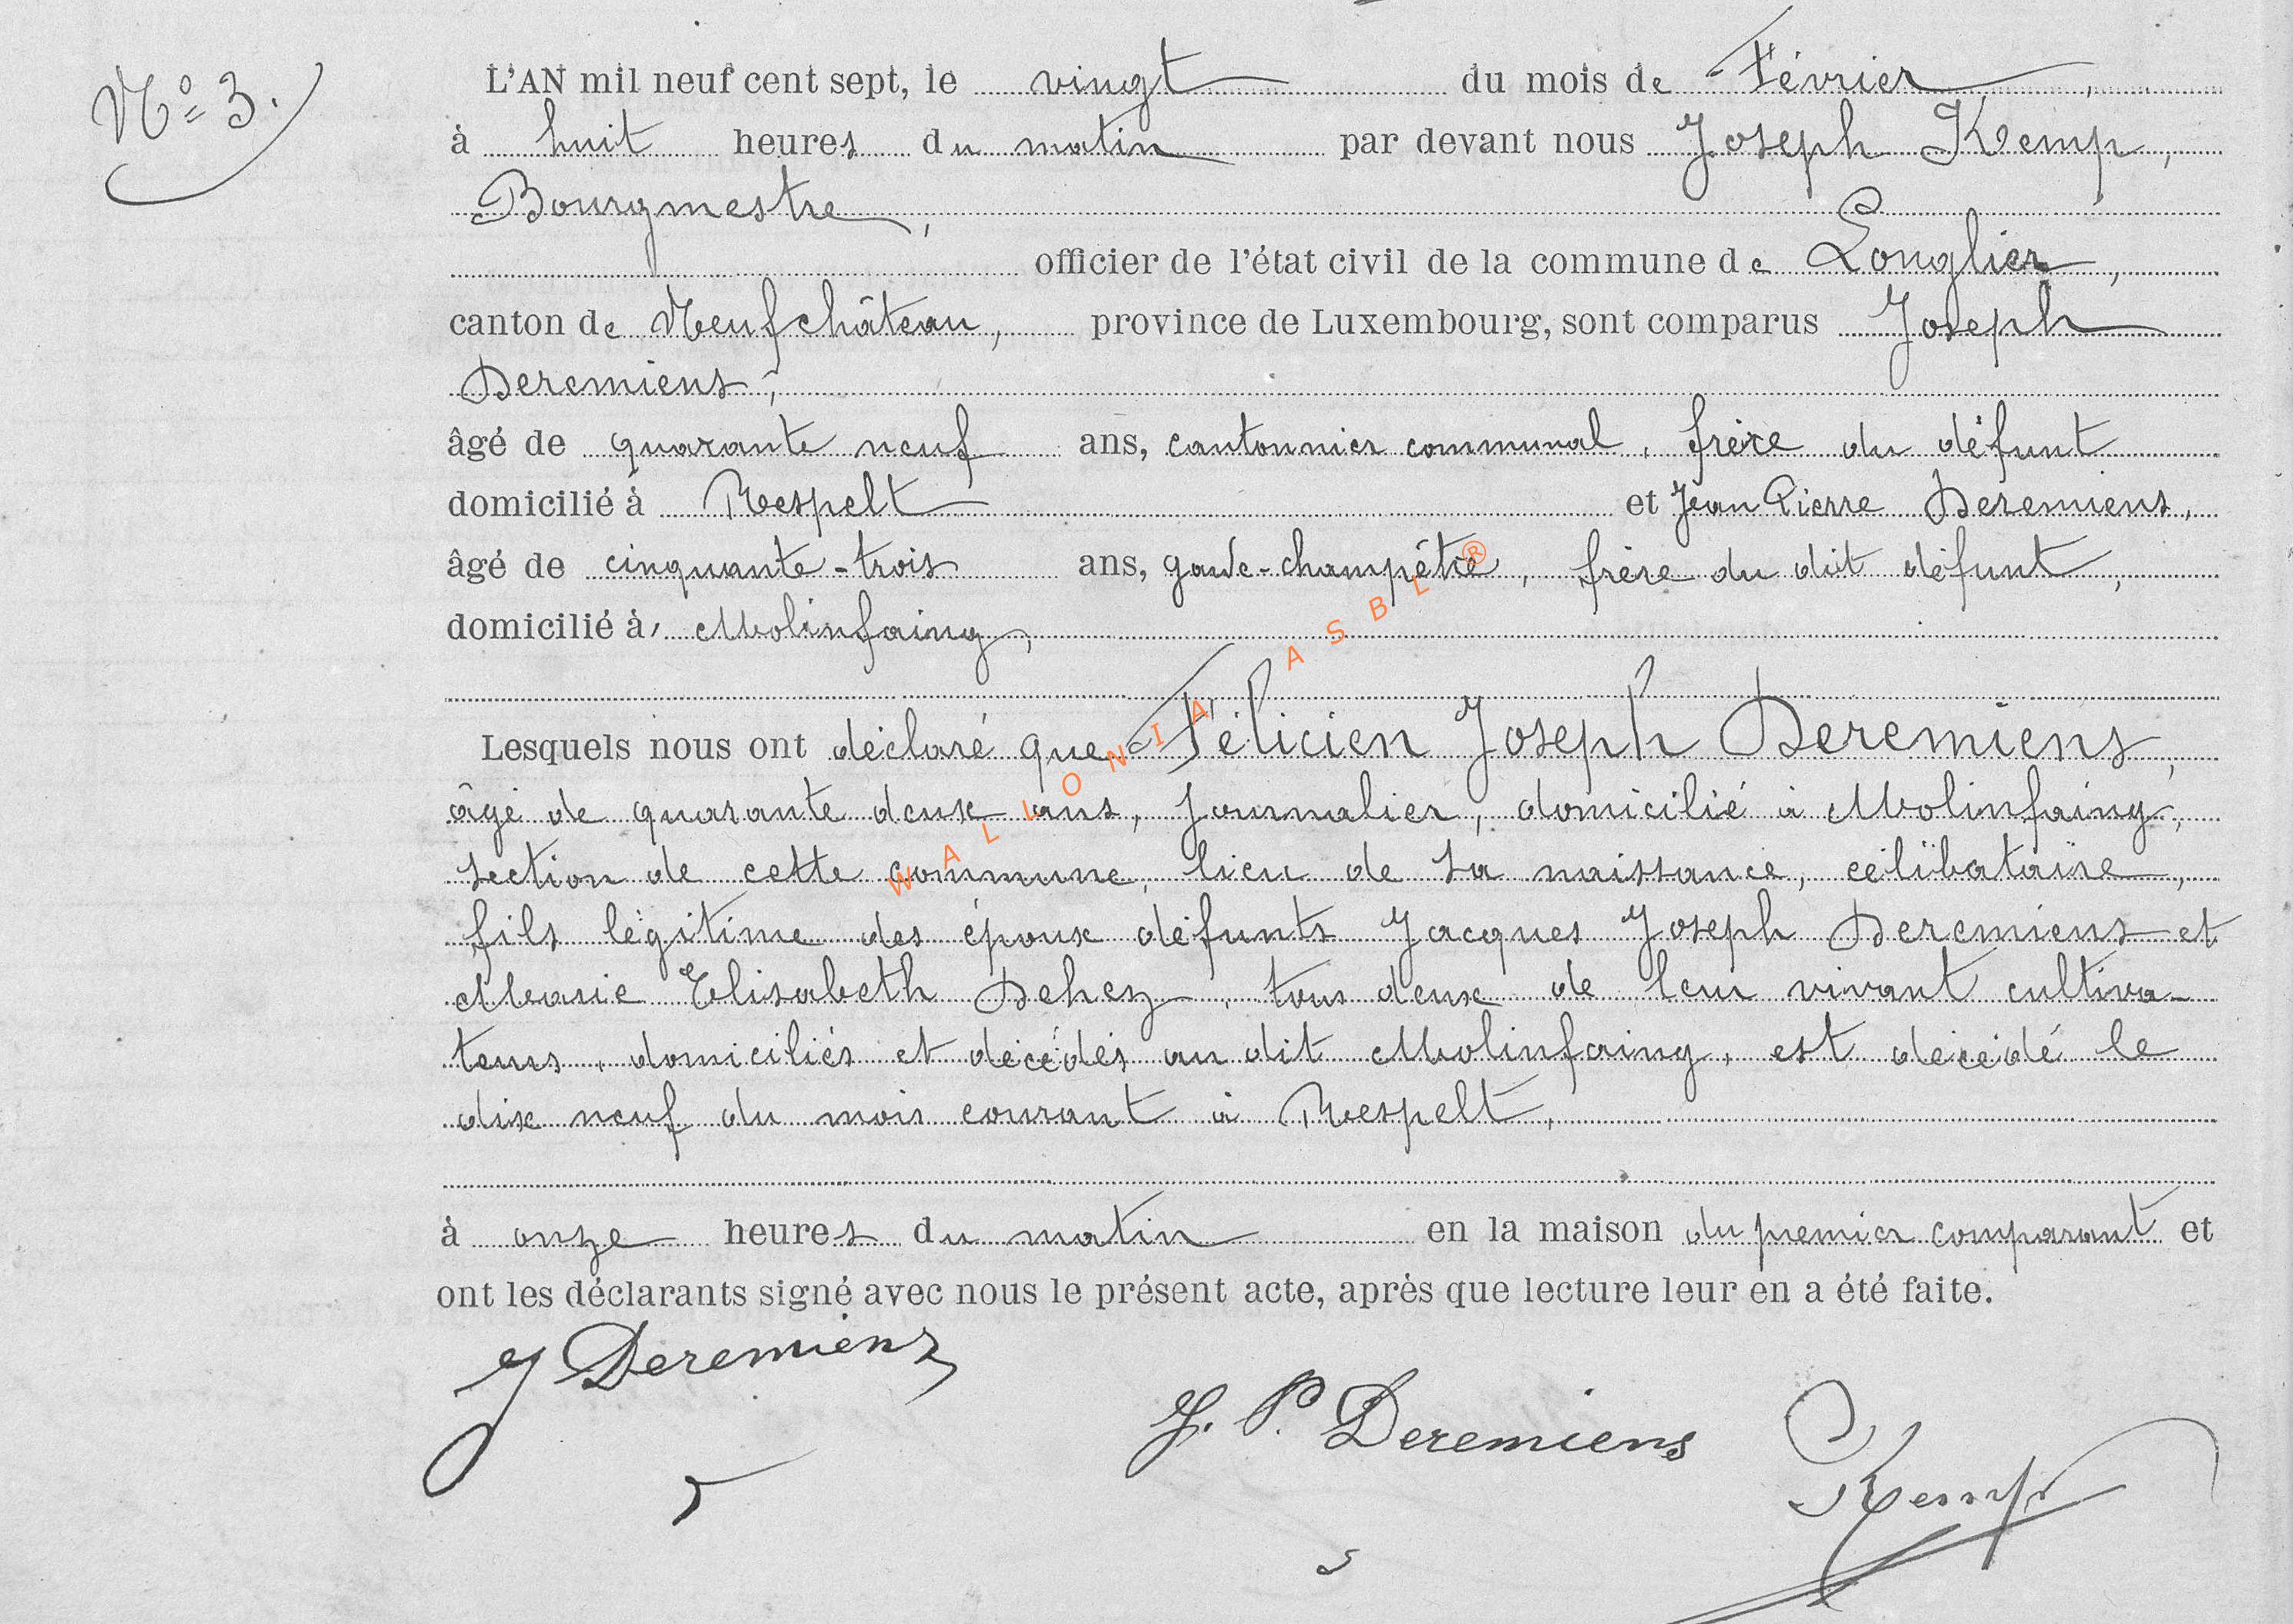 N° 3.
L'AN mil neuf cent sept, le vingt du mois de Février,
à huit heures du matin par devant nous Joseph Kemp,
Bourgmestre,
officier de l'état civil de la commune de Longlier,
canton de Neufchâteau, province de Luxembourg, sont comparus Joseph
Deremiens,
âgé de quarante neuf ans, cantonnier communal, frère du défunt
domicilié à Respelt et Jean Pierre Deremiens,
âgé de cinquante-trois ans, garde-champêtre, frère du dit défunt,
domicilié à, Molinfaing,
Lesquels nous ont déclaré que Félicien Joseph Deremiens,
âgé de quarante deux ans, journalier, domicilié à Molinfaing,
section de cette commune, lieu de sa naissance, célibataire,
fils légitime des époux défunts Jacques Joseph Deremiens et
Marie Elisabeth Dehez, tous deux de leur vivant cultiva-
teurs, domiciliés et décédés au dit Molinfaing, est décédé le
dix neuf du mois courant à Respelt,
à onze heures du matin en la maison du premier comparant et
ont les déclarants signé avec nous le présent acte, après que lecture leur en a été faite.
J Deremiens
J. P. Deremiens
Kemp
WALLONIA ASBL ®